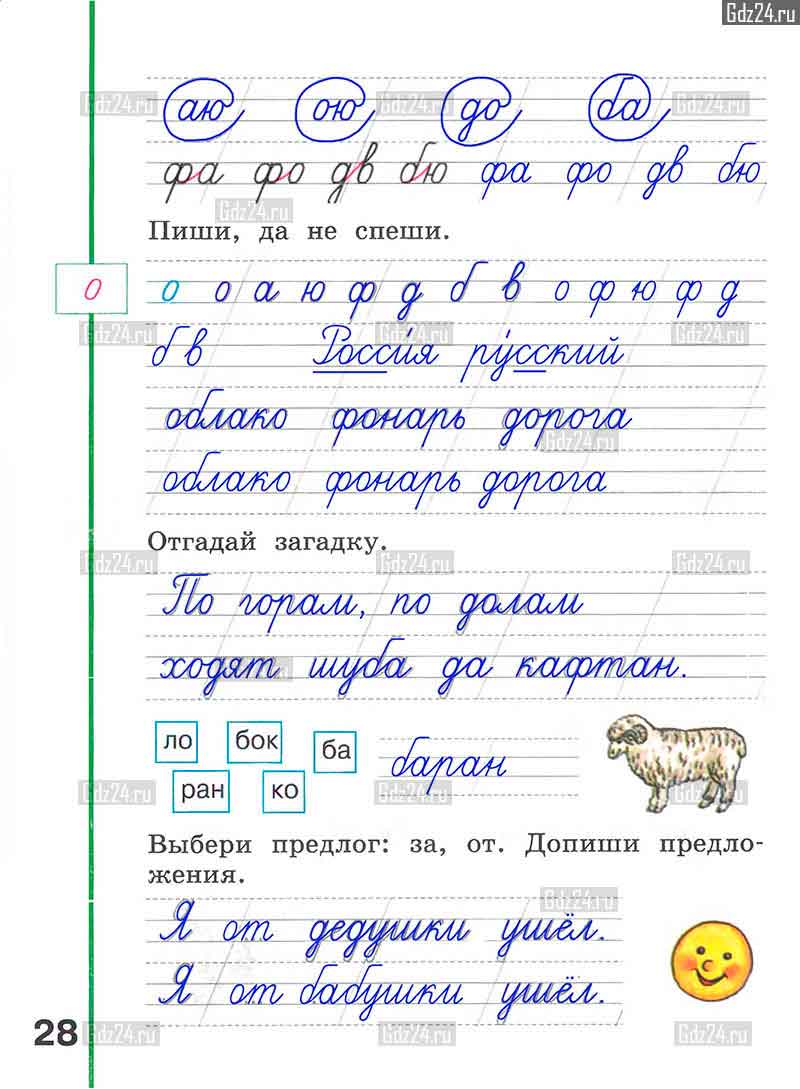 Gdz24.ru
аю ою до ба
фа фо дв бю фа фо дв бю
Пиши, да не спеши.
о о о а ю ф д б в о ф ю ф д
б в Росси́я ру́сский
облако фонарь дорога
облако фонарь дорога
Отгадай загадку.
По горам, по долам
ходят шуба да кафтан.
ло бок ба баран
ран ко
Выбери предлог: за, от. Допиши предло-
жения.
Я от дедушки ушёл.
Я от бабушки ушёл.
28